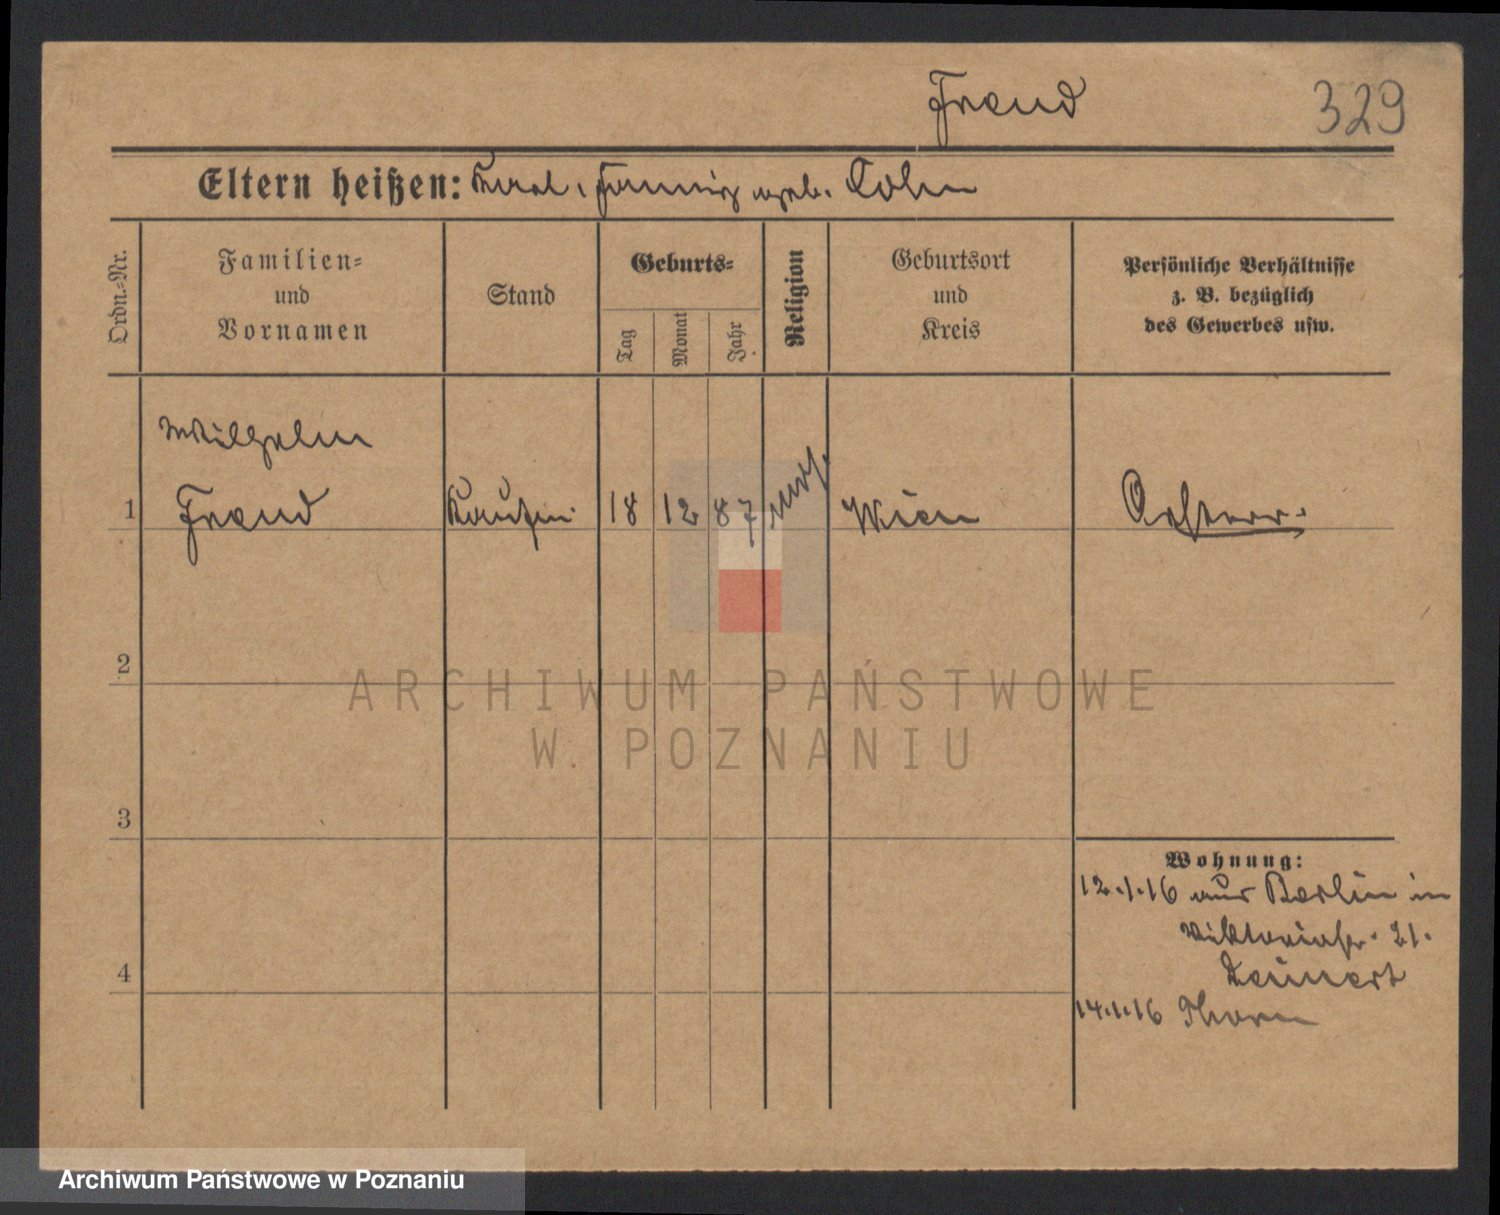 Freud
329
Eltern heißen: Karl, Fanny geb. Cohn
Ordn.-Nr.
Familien-
und
Vornamen
Stand
Geburts-
Tag
Monat
Jahr
Religion
Geburtsort
und
Kreis
Persönliche Verhältnisse
z. B. bezüglich
des Gewerbes usw.
Wilhelm
1 Freud Kaufm. 18 12 87 mos. Wien Österr.
2
3
4
ARCHIWUM PAŃSTWOWE
W POZNANIU
Wohnung:
12.1.16 aus Berlin in
Viktoriastr. 21.
14.1.16 Thorn
Archiwum Państwowe w Poznaniu